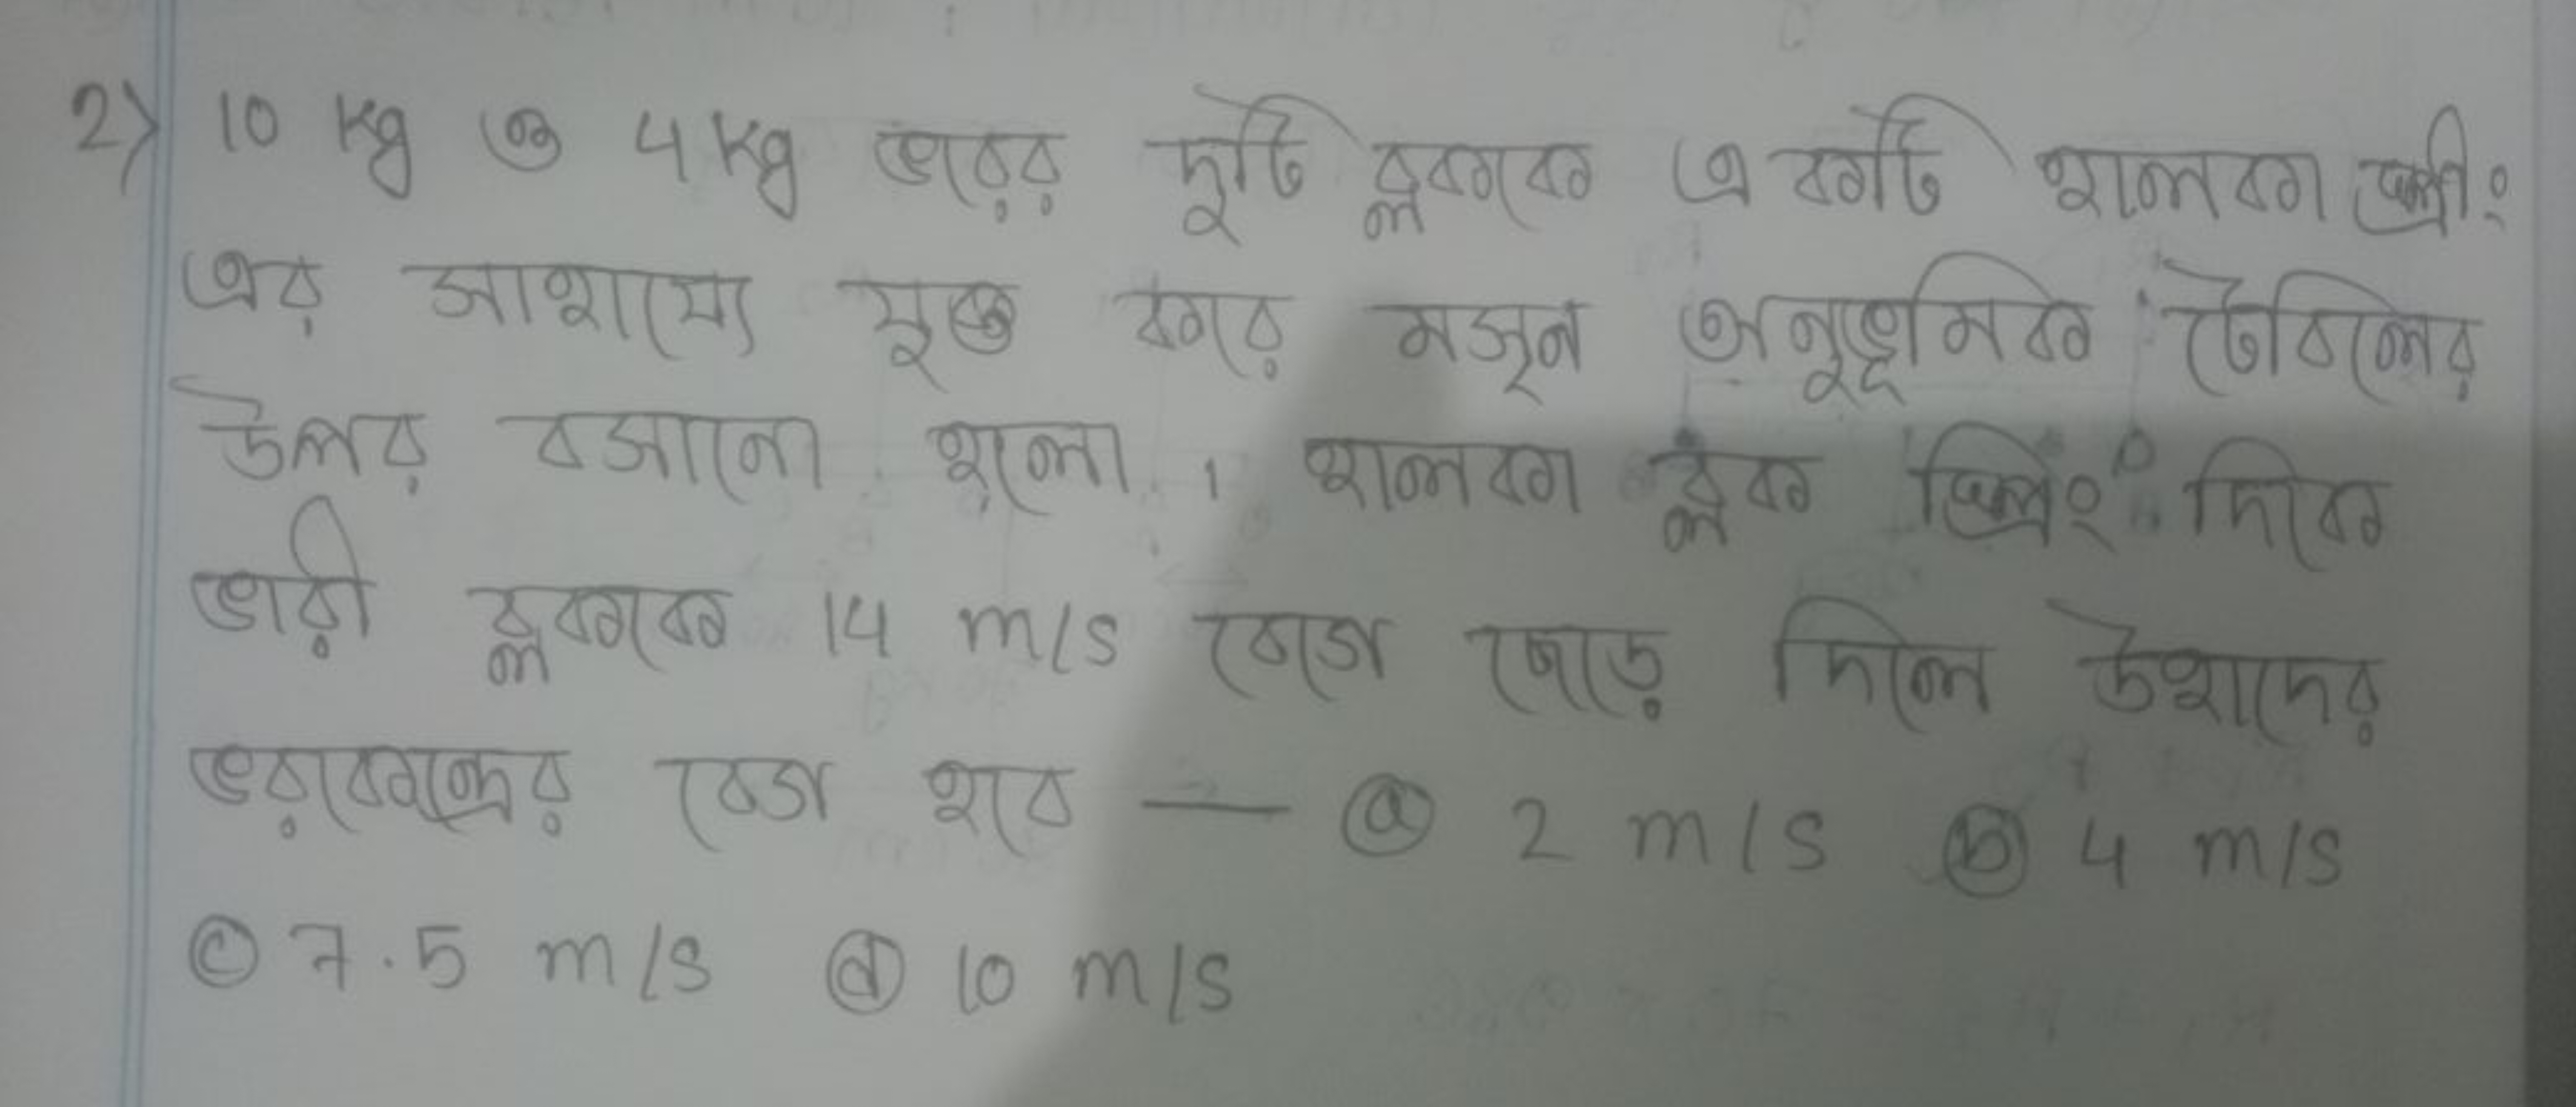 2) 10 kg ও 4 kg ভরের দুটি ব্লককে একটি হালকা স্প্রীং
এর সাহায্যে যুক্ত করে মসৃন অনুভূমিক টেবিলের
উপর বসানো হলো। হালকা ব্লক স্প্রিং দিকে
ভারী ব্লককে 14 m/s বেগে ছেড়ে দিলে উহাদের
ভরকেন্দ্রের বেগ হবে — ⓐ 2 m/s ⓑ 4 m/s
ⓒ 7.5 m/s ⓓ 10 m/s